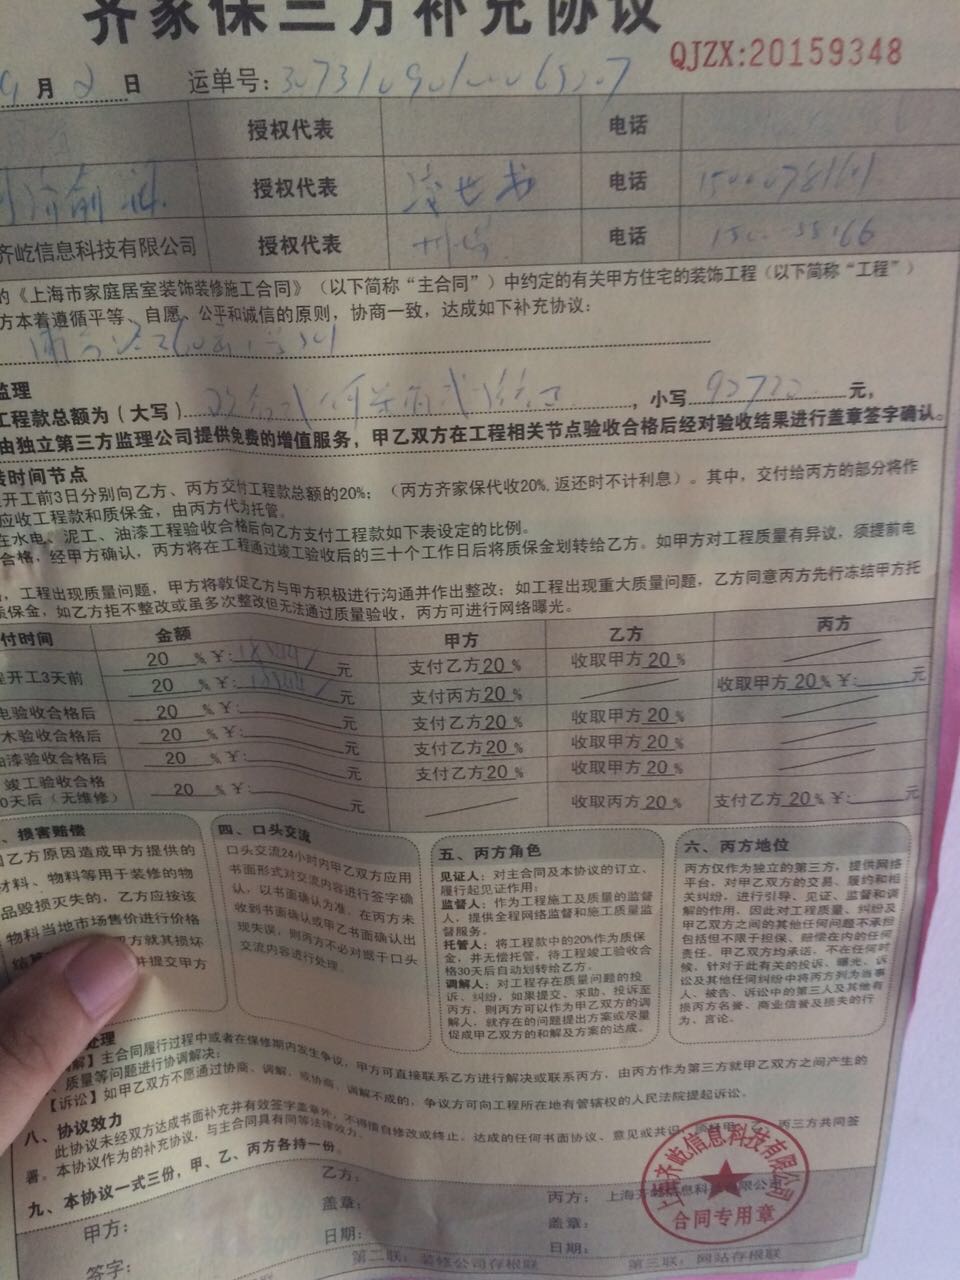 齐家保三方补充协议
QJZX:20159348
月 2 日 运单号:
授权代表 电话
授权代表 电话
齐屹信息科技有限公司 授权代表 电话
的《上海市家庭居室装饰装修施工合同》（以下简称“主合同”）中约定的有关甲方住宅的装饰工程（以下简称“工程”）
方本着遵循平等、自愿、公平和诚信的原则，协商一致，达成如下补充协议：
监理
工程款总额为（大写） ，小写 元，
由独立第三方监理公司提供免费的增值服务，甲乙双方在工程相关节点验收合格后经对验收结果进行盖章签字确认。
时间节点
开工前3日分别向乙方、丙方交付工程款总额的20%；（丙方齐家保代收20%,返还时不计利息）。其中，交付给丙方的部分将作
应收工程款和质保金，由丙方代为托管。
在水电、泥工、油漆工程验收合格后向乙方支付工程款如下表设定的比例。
合格，经甲方确认，丙方将在工程通过竣工验收后的三十个工作日后将质保金划转给乙方。如甲方对工程质量有异议，须提前电
，工程出现质量问题，甲方将敦促乙方与甲方积极进行沟通并作出整改；如工程出现重大质量问题，乙方同意丙方先行冻结甲方托
质保金，如乙方拒不整改或虽多次整改但无法通过质量验收，丙方可进行网络曝光。
付时间 金额 甲方 乙方 丙方
20 %￥: 元 支付乙方 20 % 收取甲方 20 %
开工3天前 20 %￥: 元 支付丙方 20 % 收取甲方 20 %￥: 元
电验收合格后 20 %￥: 元 支付乙方 20 % 收取甲方 20 %
木验收合格后 20 %￥: 元 支付乙方 20 % 收取甲方 20 %
油漆验收合格后 20 %￥: 元 支付乙方 20 % 收取甲方 20 %
竣工验收合格
0天后（无维修） 20 %￥: 元 收取丙方 20 % 支付乙方 20 %￥: 元
、损害赔偿
乙方原因造成甲方提供的
材料、物料等用于装修的物
品毁损灭失的，乙方应按该
物料当地市场售价进行价格
方就其损坏
并提交甲方
四、口头交流
口头交流24小时内甲乙双方应用
书面形式对交流内容进行签字确
认，以书面确认为准。在丙方未
收到书面确认或甲乙书面确认出
现失误，则丙方不必对既于口头
交流内容进行处理。
五、丙方角色
见证人：对主合同及本协议的订立、
履行起见证作用；
监督人：作为工程施工及质量的监督
人，提供全程网络监督和施工质量监
督服务。
托管人：将工程款中的20%作为质保
金，并无偿托管，待工程竣工验收合
格30天后自动划转给乙方。
调解人：对工程存在质量问题的投
诉、纠纷，如果提交、求助、投诉至
丙方，则丙方可以作为甲乙双方的调
解人，就存在的问题提出方案或尽量
促成甲乙双方的和解及方案的达成。
六、丙方地位
丙方仅作为独立的第三方，提供网络
平台，对甲乙双方的交易、履约和相
关纠纷，进行引导、见证、监督和调
解的作用，因此对工程质量、纠纷及
甲乙双方之间的其他任何问题不承担
包括但不限于担保、赔偿在内的任何
责任。甲乙双方均承诺，不在任何时
候，针对于此有关的投诉、曝光、诉
讼及其他任何纠纷中将丙方列为当事
人、被告、诉讼中的第三人及其他有
损丙方名誉、商业信誉及损失的行
为、言论。
处理
解】主合同履行过程中或者在保修期内发生争议，甲方可直接联系乙方进行解决或联系丙方，由丙方作为第三方就甲乙双方之间产生的
质量等问题进行协调解决；
【诉讼】如甲乙双方不愿通过协商、调解，或协商、调解不成的，争议方可向工程所在地有管辖权的人民法院提起诉讼。
八、协议效力
此协议未经双方达成书面补充并有效签字盖章外，不得擅自修改或终止。达成的任何书面协议、意见或共识 丙三方共同签
署。本协议作为的补充协议，与主合同具有同等法律效力。
九、本协议一式三份，甲、乙、丙方各持一份。
甲方： 乙方： 丙方：上海齐屹信息科技有限公司
签字： 盖章： 盖章：
日期： 日期：
第二联：装修公司存根联 第三联：网站存根联
上海齐屹信息科技有限公司
合同专用章